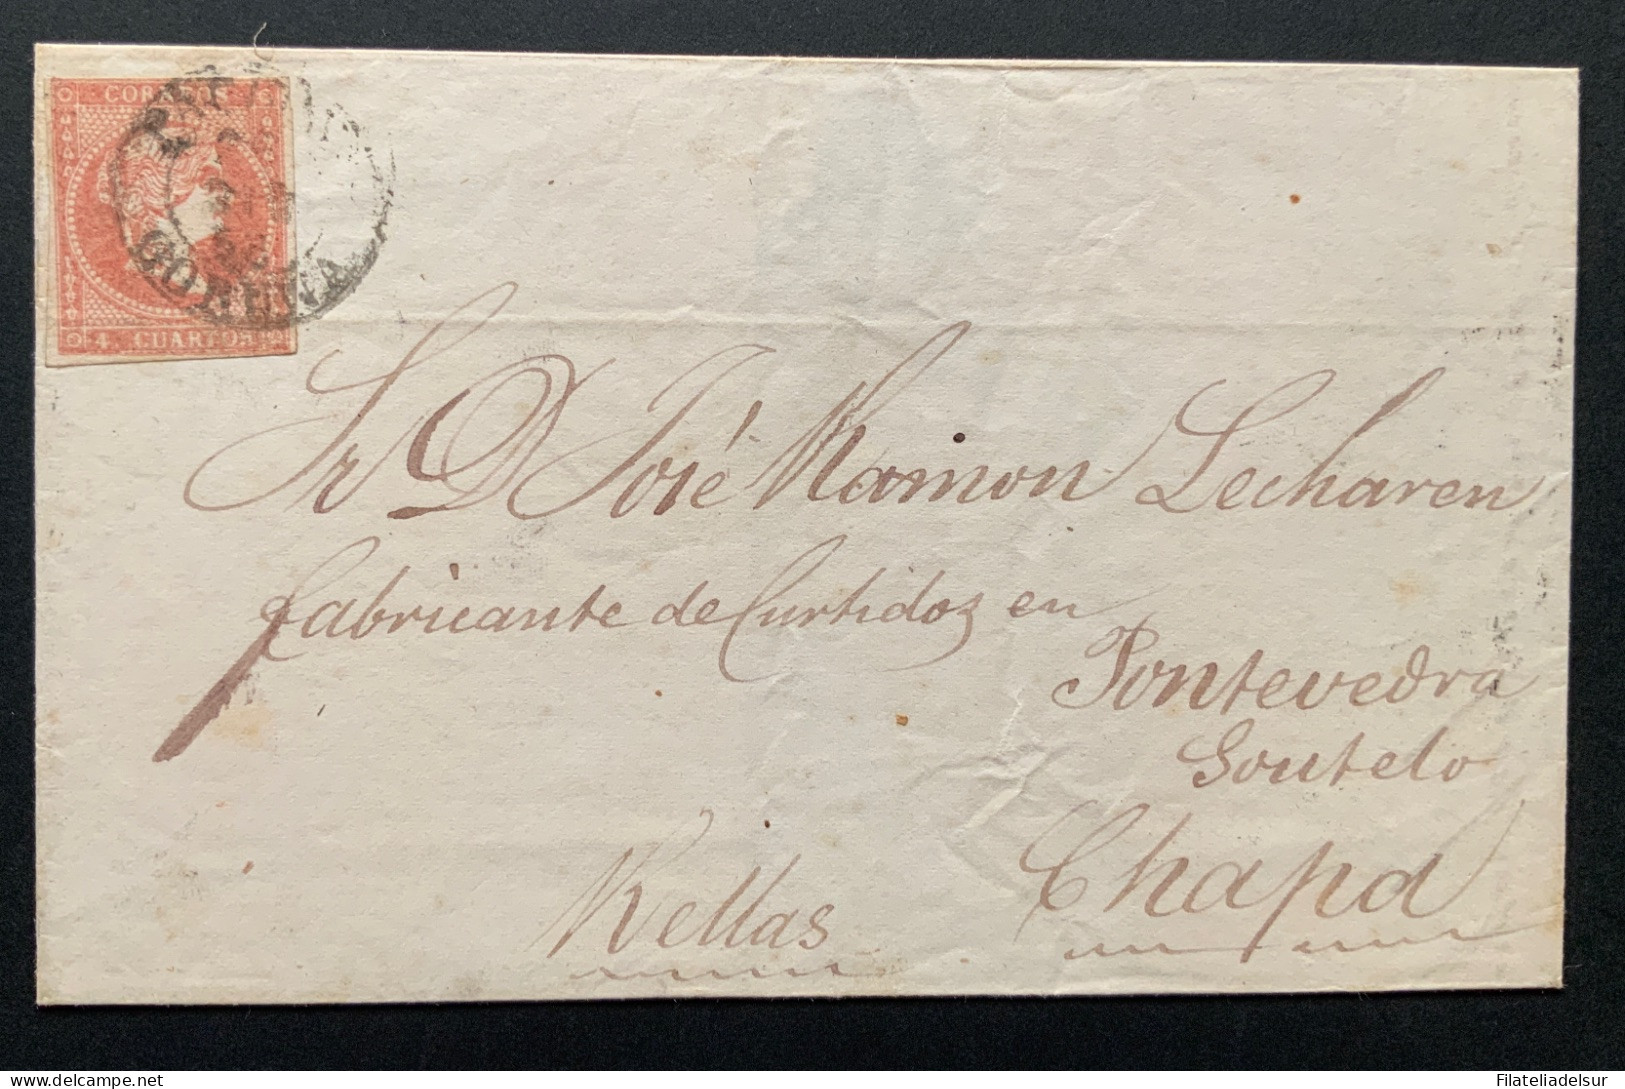 CORREOS
CORUÑA
4. CUARTOS
Sr D José Ramon Lecharen
fabricante de Curtidos en
Pontevedra
Soutelo
Chapa
Rellas
Filateliadelsur